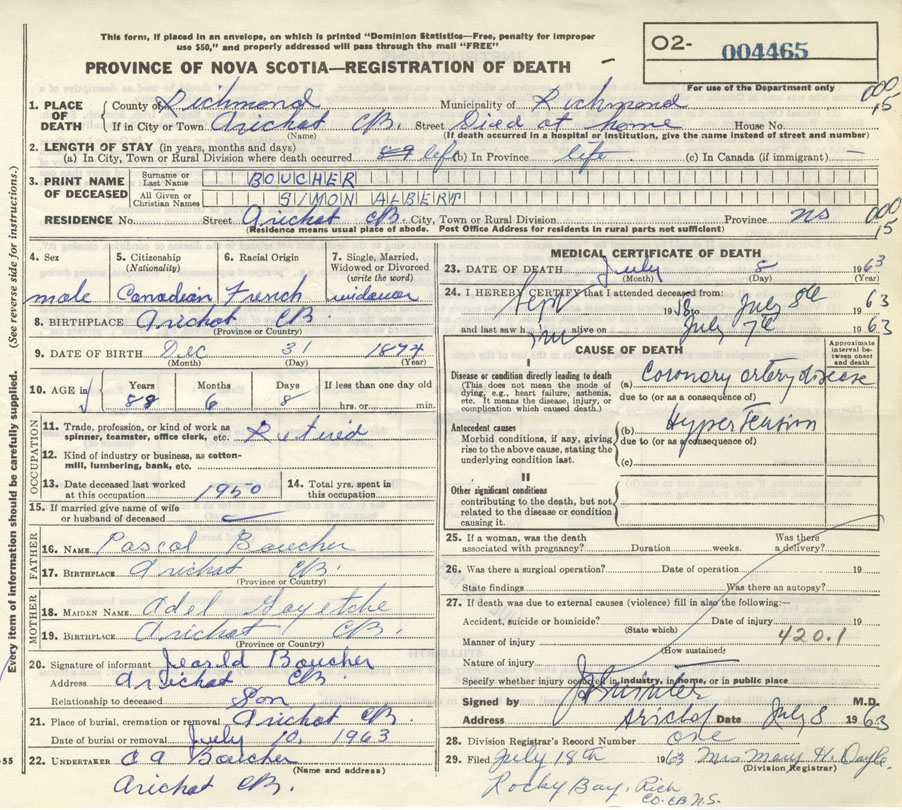 This form, if placed in an envelope, on which is printed "Dominion Statistics—Free, penalty for improper
use $50," and properly addressed will pass through the mail "FREE"
PROVINCE OF NOVA SCOTIA—REGISTRATION OF DEATH
O2- 004465
For use of the Department only
1. PLACE OF DEATH County of Richmond Municipality of Richmond 000,15
If in City or Town Arichat CB. Street Died at home House No.
(Name) (If death occurred in a hospital or institution, give the name instead of street and number)
2. LENGTH OF STAY (in years, months and days)
(a) In City, Town or Rural Division where death occurred life (b) In Province life (c) In Canada (if immigrant) —
3. PRINT NAME OF DECEASED Surname or Last Name BOUCHER
All Given or Christian Names SIMON ALBERT
RESIDENCE No. Street Arichat CB. City, Town or Rural Division Province NS 000,15
(Residence means usual place of abode. Post Office Address for residents in rural parts not sufficient)
4. Sex male
5. Citizenship (Nationality) Canadian
6. Racial Origin French
7. Single, Married, Widowed or Divorced (write the word) widower
8. BIRTHPLACE Arichat CB.
(Province or Country)
9. DATE OF BIRTH Dec 31 1874
(Month) (Day) (Year)
10. AGE in Years 88 Months 6 Days 8 If less than one day old hrs. or min.
OCCUPATION
11. Trade, profession or kind of work as spinner, teamster, office clerk, etc. Retired
12. Kind of industry or business, as cotton-mill, lumbering, bank, etc.
13. Date deceased last worked at this occupation 1950
14. Total yrs. spent in this occupation
15. If married give name of wife or husband of deceased —
FATHER
16. NAME Pascal Boucher
17. BIRTHPLACE Arichat CB.
(Province or Country)
MOTHER
18. MAIDEN NAME Adel
19. BIRTHPLACE Arichat CB.
(Province or Country)
20. Signature of informant Boucher
Address Arichat CB
Relationship to deceased Son
21. Place of burial, cremation or removal Arichat CB.
Date of burial or removal July 10, 1963
22. UNDERTAKER C A Boucher
(Name and address)
Arichat CB.
MEDICAL CERTIFICATE OF DEATH
23. DATE OF DEATH July 8 1963
(Month) (Day) (Year)
24. I HEREBY CERTIFY that I attended deceased from:
Sept 1958 to July 8th 1963
and last saw him alive on July 7th 1963
CAUSE OF DEATH
Approximate interval between onset and death
I
Disease or condition directly leading to death
(This does not mean the mode of dying, e.g., heart failure, asthenia, etc. It means the disease, injury, or complication which caused death.)
(a) Coronary artery disease
due to (or as a consequence of)
Antecedent causes
Morbid conditions, if any, giving rise to the above cause, stating the underlying condition last.
(b) Hypertension
due to (or as a consequence of)
(c)
II
Other significant conditions
contributing to the death, but not related to the disease or condition causing it.
25. If a woman, was the death associated with pregnancy? Duration weeks. Was there a delivery?
26. Was there a surgical operation? Date of operation 19
State findings Was there an autopsy?
27. If death was due to external causes (violence) fill in also the following:—
Accident, suicide or homicide? Date of injury 19
(State which)
Manner of injury 420.1
(How sustained)
Nature of injury
Specify whether injury occurred in industry, in home, or in public place
Signed by M.D.
Address Arichat Date July 8 1963
28. Division Registrar's Record Number one
29. Filed July 18th 1963 Mrs Mary H. Doyle.
(Division Registrar)
Rocky Bay, Rich
Co. CB N.S.
Every item of information should be carefully supplied. (See reverse side for instructions.)
-55